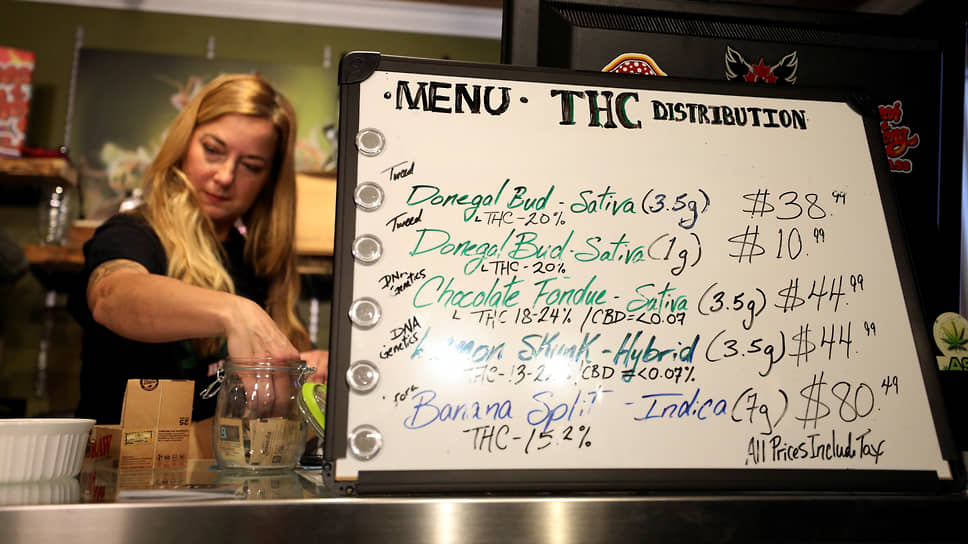 ·MENU· THC DISTRIBUTION
Tweed
Donegal Bud - Sativa (3.5g) $38.99
THC-20%
Tweed
Donegal Bud-Sativa (1g) $10.99
THC-20%
DNA genetics
Chocolate Fondue - Sativa (3.5g) $44.99
THC 18-24% / CBD=<0.07
DNA Genetics
Lemon Skunk - Hybrid (3.5g) $44.99
CBD <0.07%
Banana Split - Indica (7g) $80.49
THC-15.2%
All Prices Include Tax
RAW